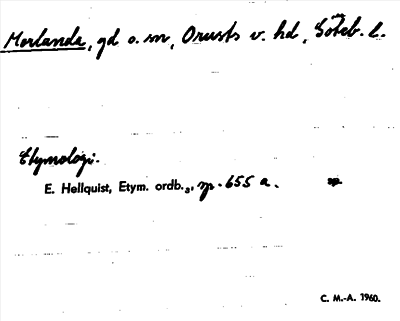 Morlanda, gd o. sn, Orusts v. hd, Göteb. l.
Etymologi.
E. Hellquist, Etym. ordb.₃, sp. 655 a.
C. M.-A. 1960.